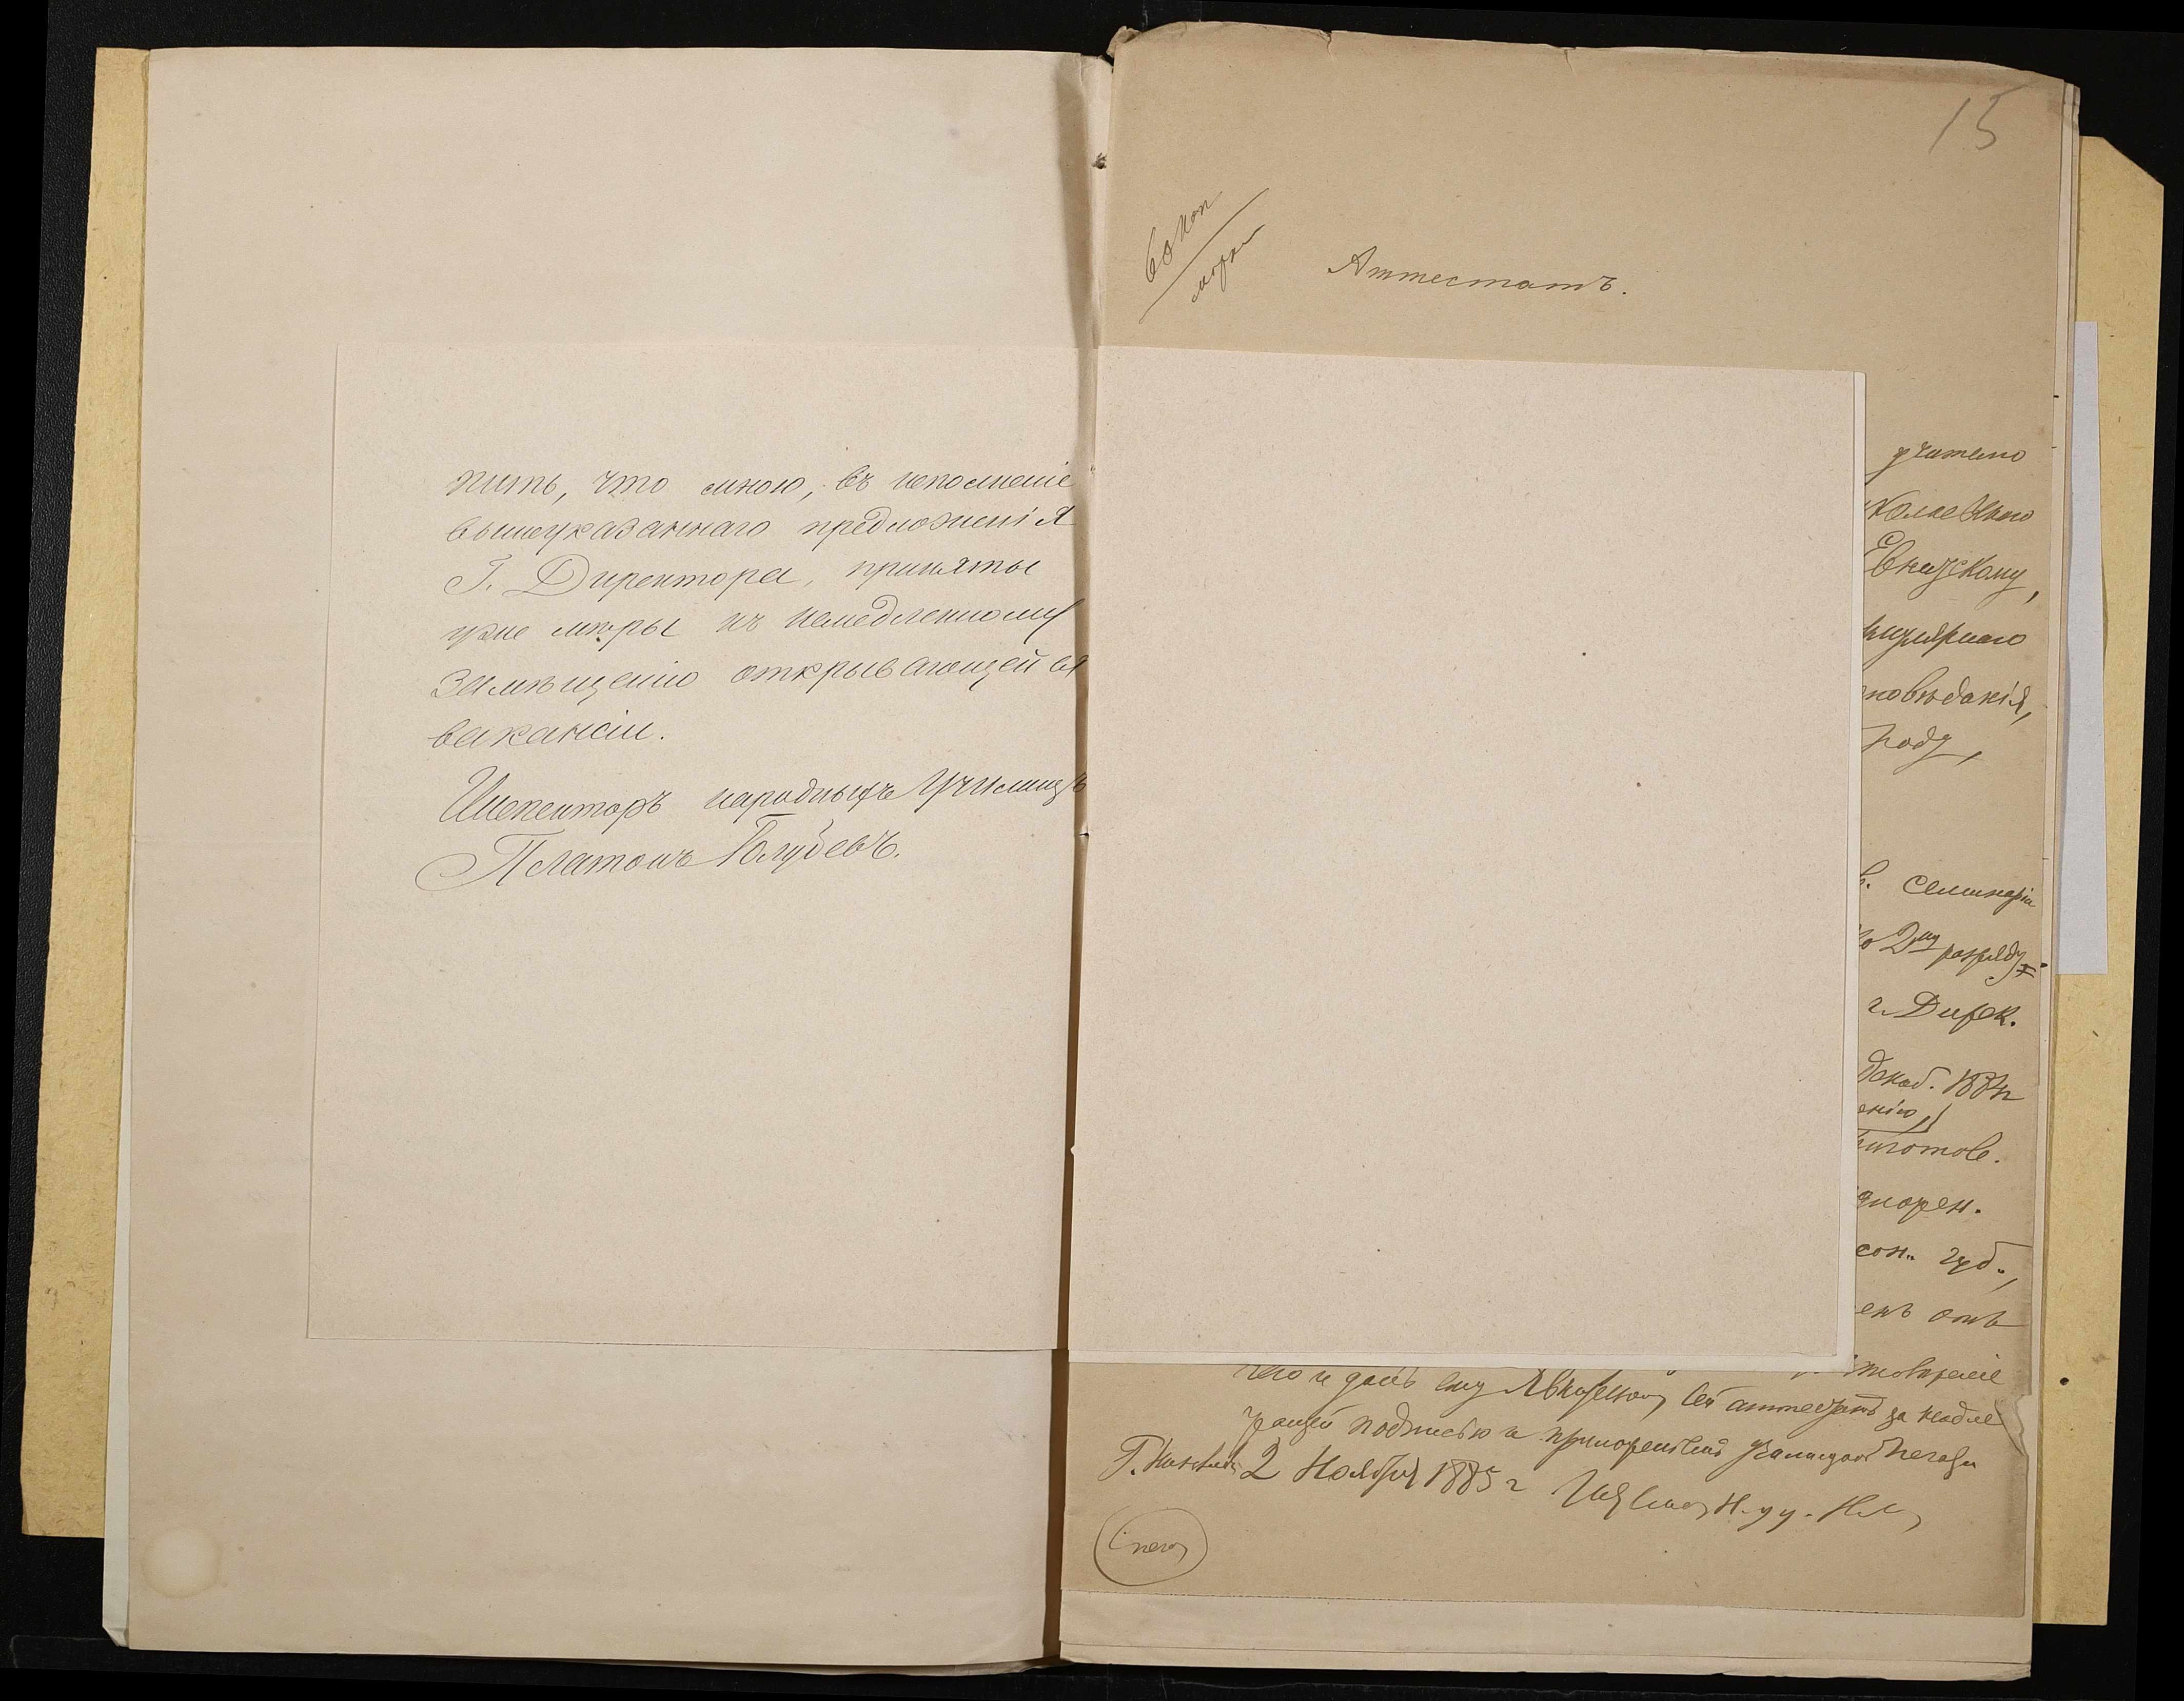 жить, что мною, въ исполненіе
вышеуказаннаго предложенія
Г. Директора, приняты
уже мѣры къ немедленному
замѣщенію открывающейся
вакансіи.
Инспекторъ народныхъ Училищъ
Платонъ Голубевъ.
15
60 коп
марки
Аттестатъ.
учителю
Евнузскому,
новѣданія,
году,
в. Семинаріи
2му разряду
г. Дирек.
декаб. 1884 г
енію,
риготов.
сон. губ.,
енъ отъ
чего и данъ ему сей аттестатъ за надле
жащей подписью и приложеніемъ казенной печати
Г. 2 Ноября 1885 г